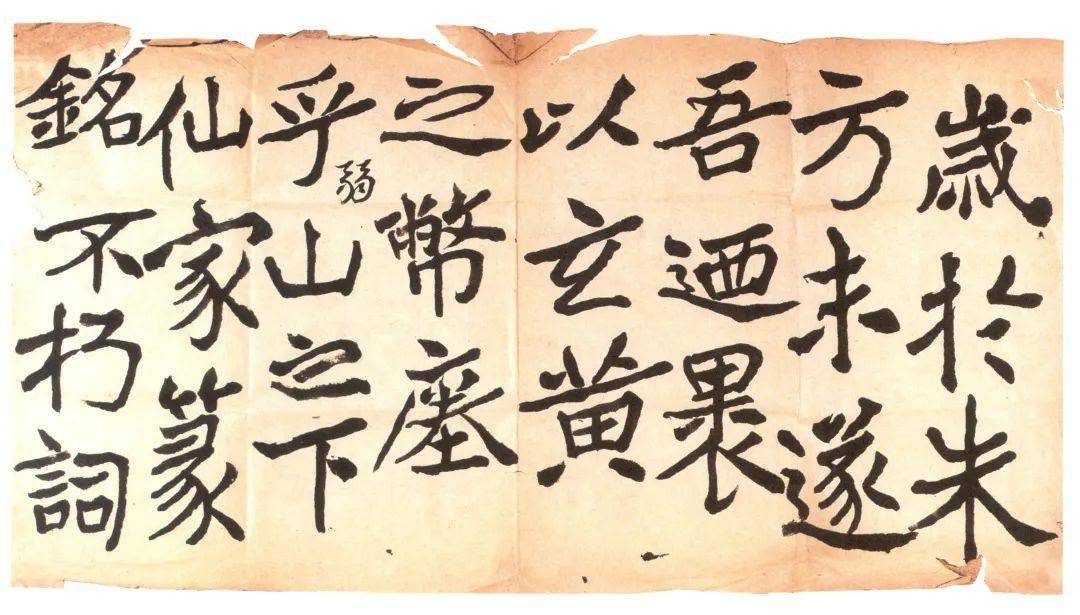 歲於朱
方未遂
吾迺裹
以玄黄
之幣瘞
乎山之下
仙家篆
銘不朽詞